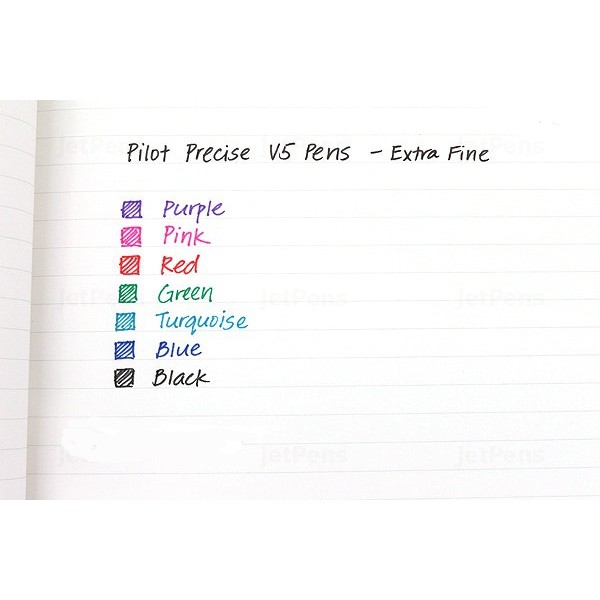 Pilot Precise V5 Pens - Extra Fine
Purple
Pink
Red
Green
Turquoise
Blue
Black
JetPens JetPens JetPens
JetPens JetPens JetPens
JetPens JetPens